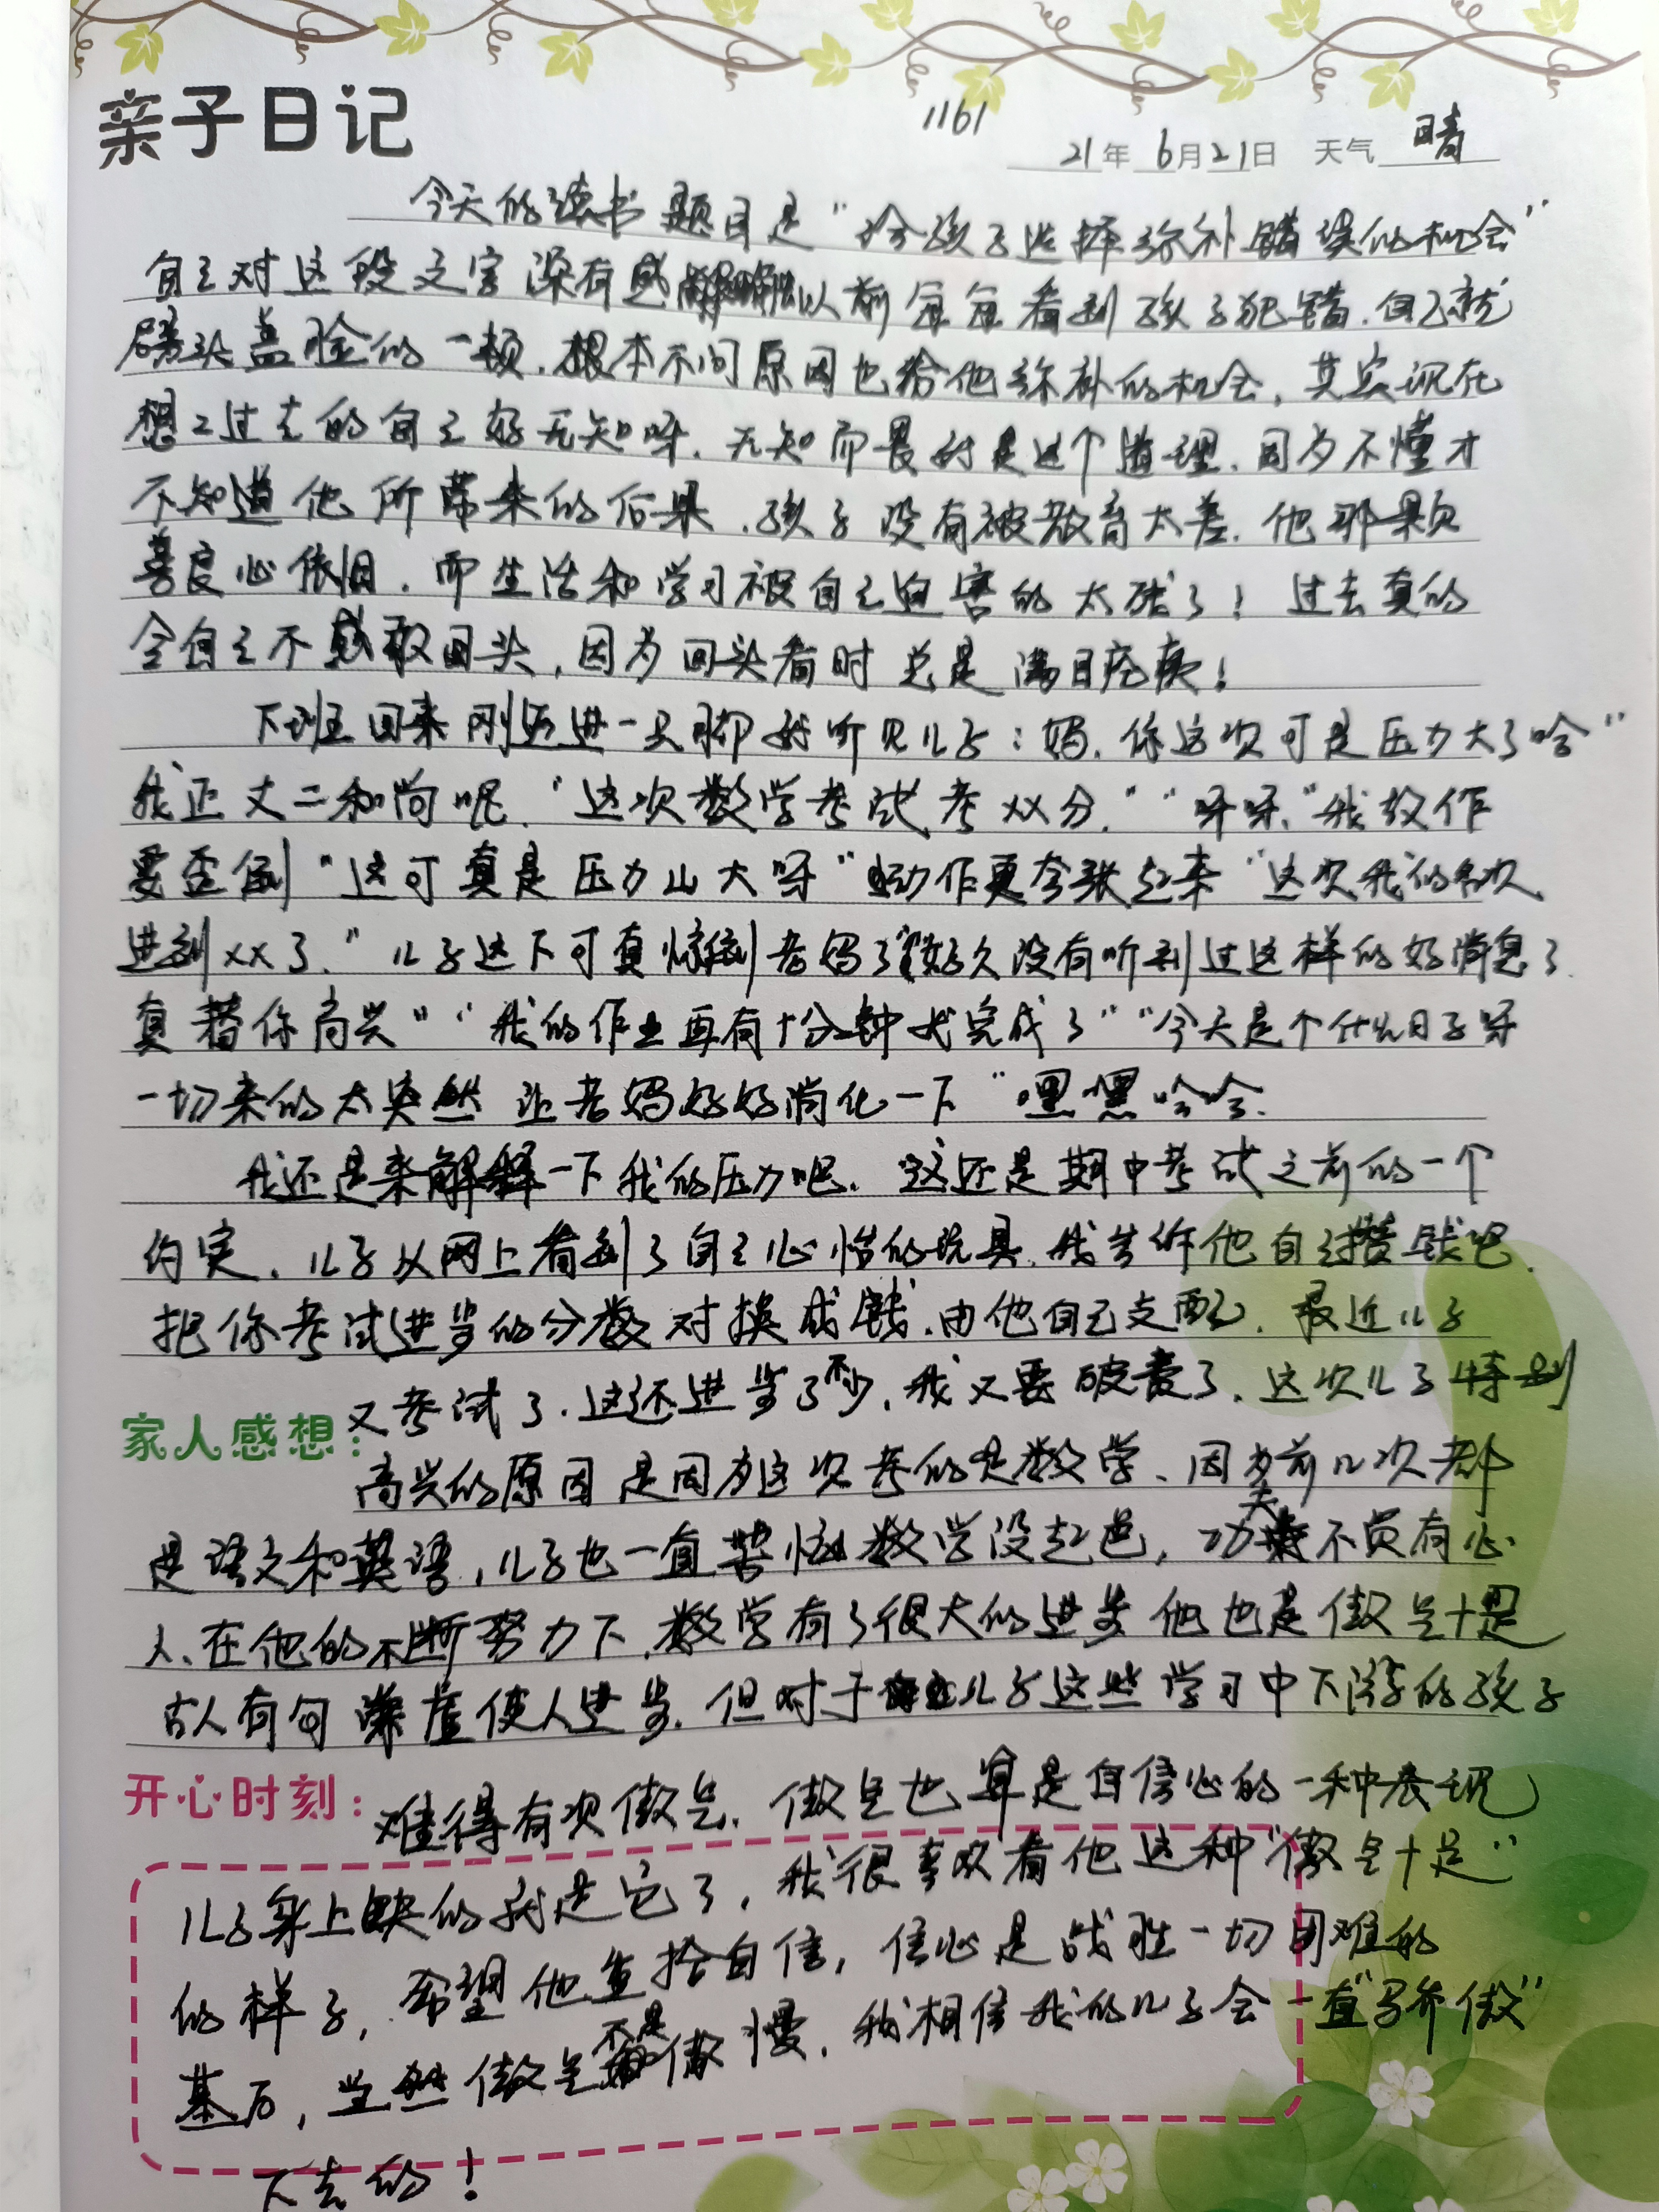 亲子日记
1161
21年 6月21日 天气 晴
今天的读书题目是“给孩子选择弥补错误的机会”
自己对这段文字深有感 以前每每看到孩子犯错.自己就
劈头盖脸的一顿.根本不问原因也给他弥补的机会,其实现在
想想过去的自己好无知呀.无知而畏就是这个道理.因为不懂才
不知道他所带来的后果.孩子没有被教育太差.他那颗
善良心依旧.而生活和学习被自己迫害的太残了!过去真的
令自己不敢回头,因为回头看时总是满目疮痍!
下班回来刚迈进一只脚就听见儿子:妈.你这次可是压力大了哈”
我正丈二和尚呢.“这次数学考试考XX分.”“呀呀.”我故作
要歪倒“这可真是压力山大呀”动作更夸张起来“这次我的名次
进到XX了.”儿子这下可真惊倒老妈了“好久没有听到过这样的好消息了
真替你高兴”“我的作业再有十分钟就完成了”“今天是个什么日子呀
一切来的太突然 让老妈好好消化一下”嘿嘿哈哈.
我还是来解释一下我的压力吧.这还是期中考试之前的一个
约定.儿子从网上看到了自己心怡的玩具.我告诉他自己攒钱吧.
把你考试进步的分数对换成钱.由他自己支配.最近儿子
又考试了.这还进步了不少.我又要破费了.这次儿子特别
家人感想:
高兴的原因是因为这次考的是数学、因为前几次都
是语文和英语,儿子也一直苦恼数学没起色,功夫不负有心
人.在他的不断努力下.数学有了很大的进步 他也是傲气十足
古人有句 谦虚使人进步.但对于儿子这些学习中下游的孩子
开心时刻:
难得有次傲气.傲气也算是自信心的一种表现
儿子身上缺的就是它了,我很喜欢看他这种“傲气十足”
的样子,希望他重拾自信,信心是战胜一切困难的
基石,当然傲气不是傲慢.我相信我的儿子会一直“骄傲”
下去的!